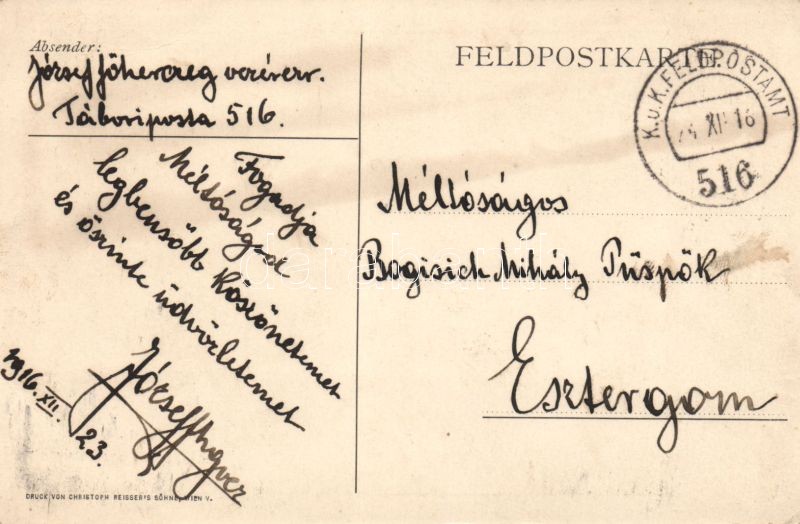 Absender:
József főherceg vezérezr.
Tábori posta 516.
FELDPOSTKARTE.
K.u.K. FELDPOSTAMT
24 XII 16
516
Méltóságos
Bogisich Mihály Püspök
Esztergom
Fogadja
Méltóságod
legbensőbb köszönetemet
és őszinte üdvözletemet
József
1916. XII. 23.
DRUCK VON CHRISTOPH REISSER'S SÖHNE, WIEN V.
darabanth